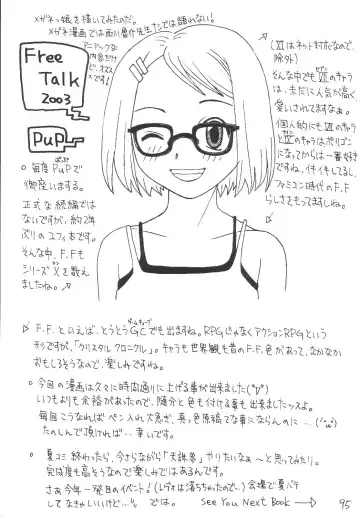 メガネっ娘を描いてみたのだ。
メガネ漫画では西川魯介先生ナシでは語れない!
マニアックな
内容だけ
ど、オスス
メです!
Free
Talk
2003
PuP
(XIはネット対応なので、
除外)
そんな中でもⅦのキャラ
は、未だに人気が高く
愛しされてますなぁ。
個人的にもⅦと
Ⅸのキャラはポリゴン
になってからは一番好き
ですね、イキイキしてるし、
ファミコン時代のF.F
らしさをもってますしね。
○ 毎度PuPで
御座いまする。
正式な続編では
ないですが、約2年
ぶりのユフィ本です。
そんな中、F.Fも
シリーズXを数え
ましたね。
F.F.といえば、とうとうGCでも出ますね。RPGじゃなくアクションRPGという
形ですが、「クリスタルクロニクル」。キャラも世界観も昔のF.F.色があって、なかなか
おもしろそうなので、楽しみですね。
○ 今回の漫画は久々に時間通りに上げる事が出来ました(^▽^)
いつもよりも余裕があったので、随分と色も付ける事も出来ましたッスよ。
毎回こうなればペン入れ大急ぎ、真っ色原稿てな事にならんのに…(´ω`)
たのしんで頂ければ… 幸いです。
○ 夏コミ終わったら、今さらながら「天誅参」やりたいなぁ〜と思ってみたり。
完成度も高そうなので楽しみではあるんです。
さぁ今年一発目のイベント!(レヴォは落ちちゃったので…)会場で夏バテ
してなきゃいいけど…%。では。 See You Next Book → 95